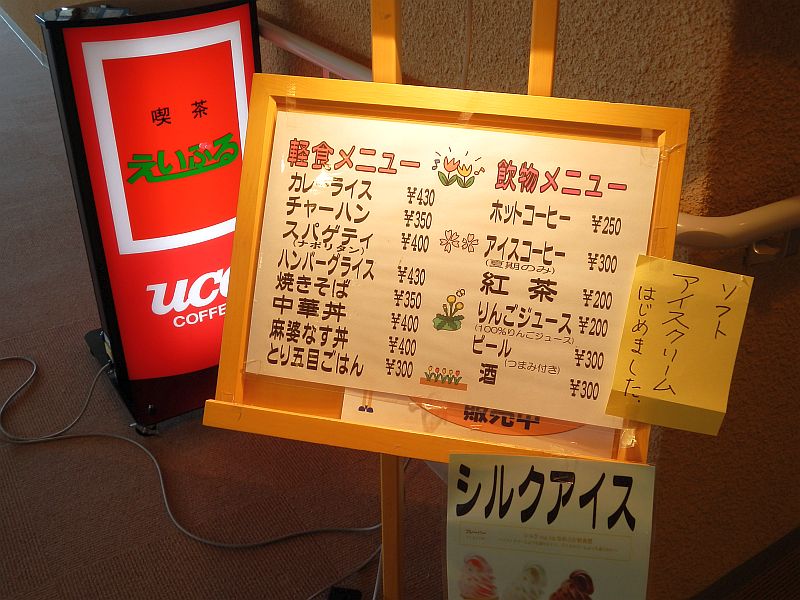 喫茶
えいぶる
UCC
COFFEE
軽食メニュー
カレーライス ¥430
チャーハン ¥350
スパゲティ ¥400
(ナポリタン)
ハンバーグライス ¥430
焼きそば ¥350
中華丼 ¥400
麻婆なす丼 ¥400
とり五目ごはん ¥300
飲物メニュー
ホットコーヒー ¥250
アイスコーヒー ¥300
(夏期のみ)
紅茶 ¥200
りんごジュース ¥200
(100%りんごジュース)
ビール ¥300
(つまみ付き)
酒 ¥300
ソフト
アイスクリーム
はじめました。
販売中
シルクアイス